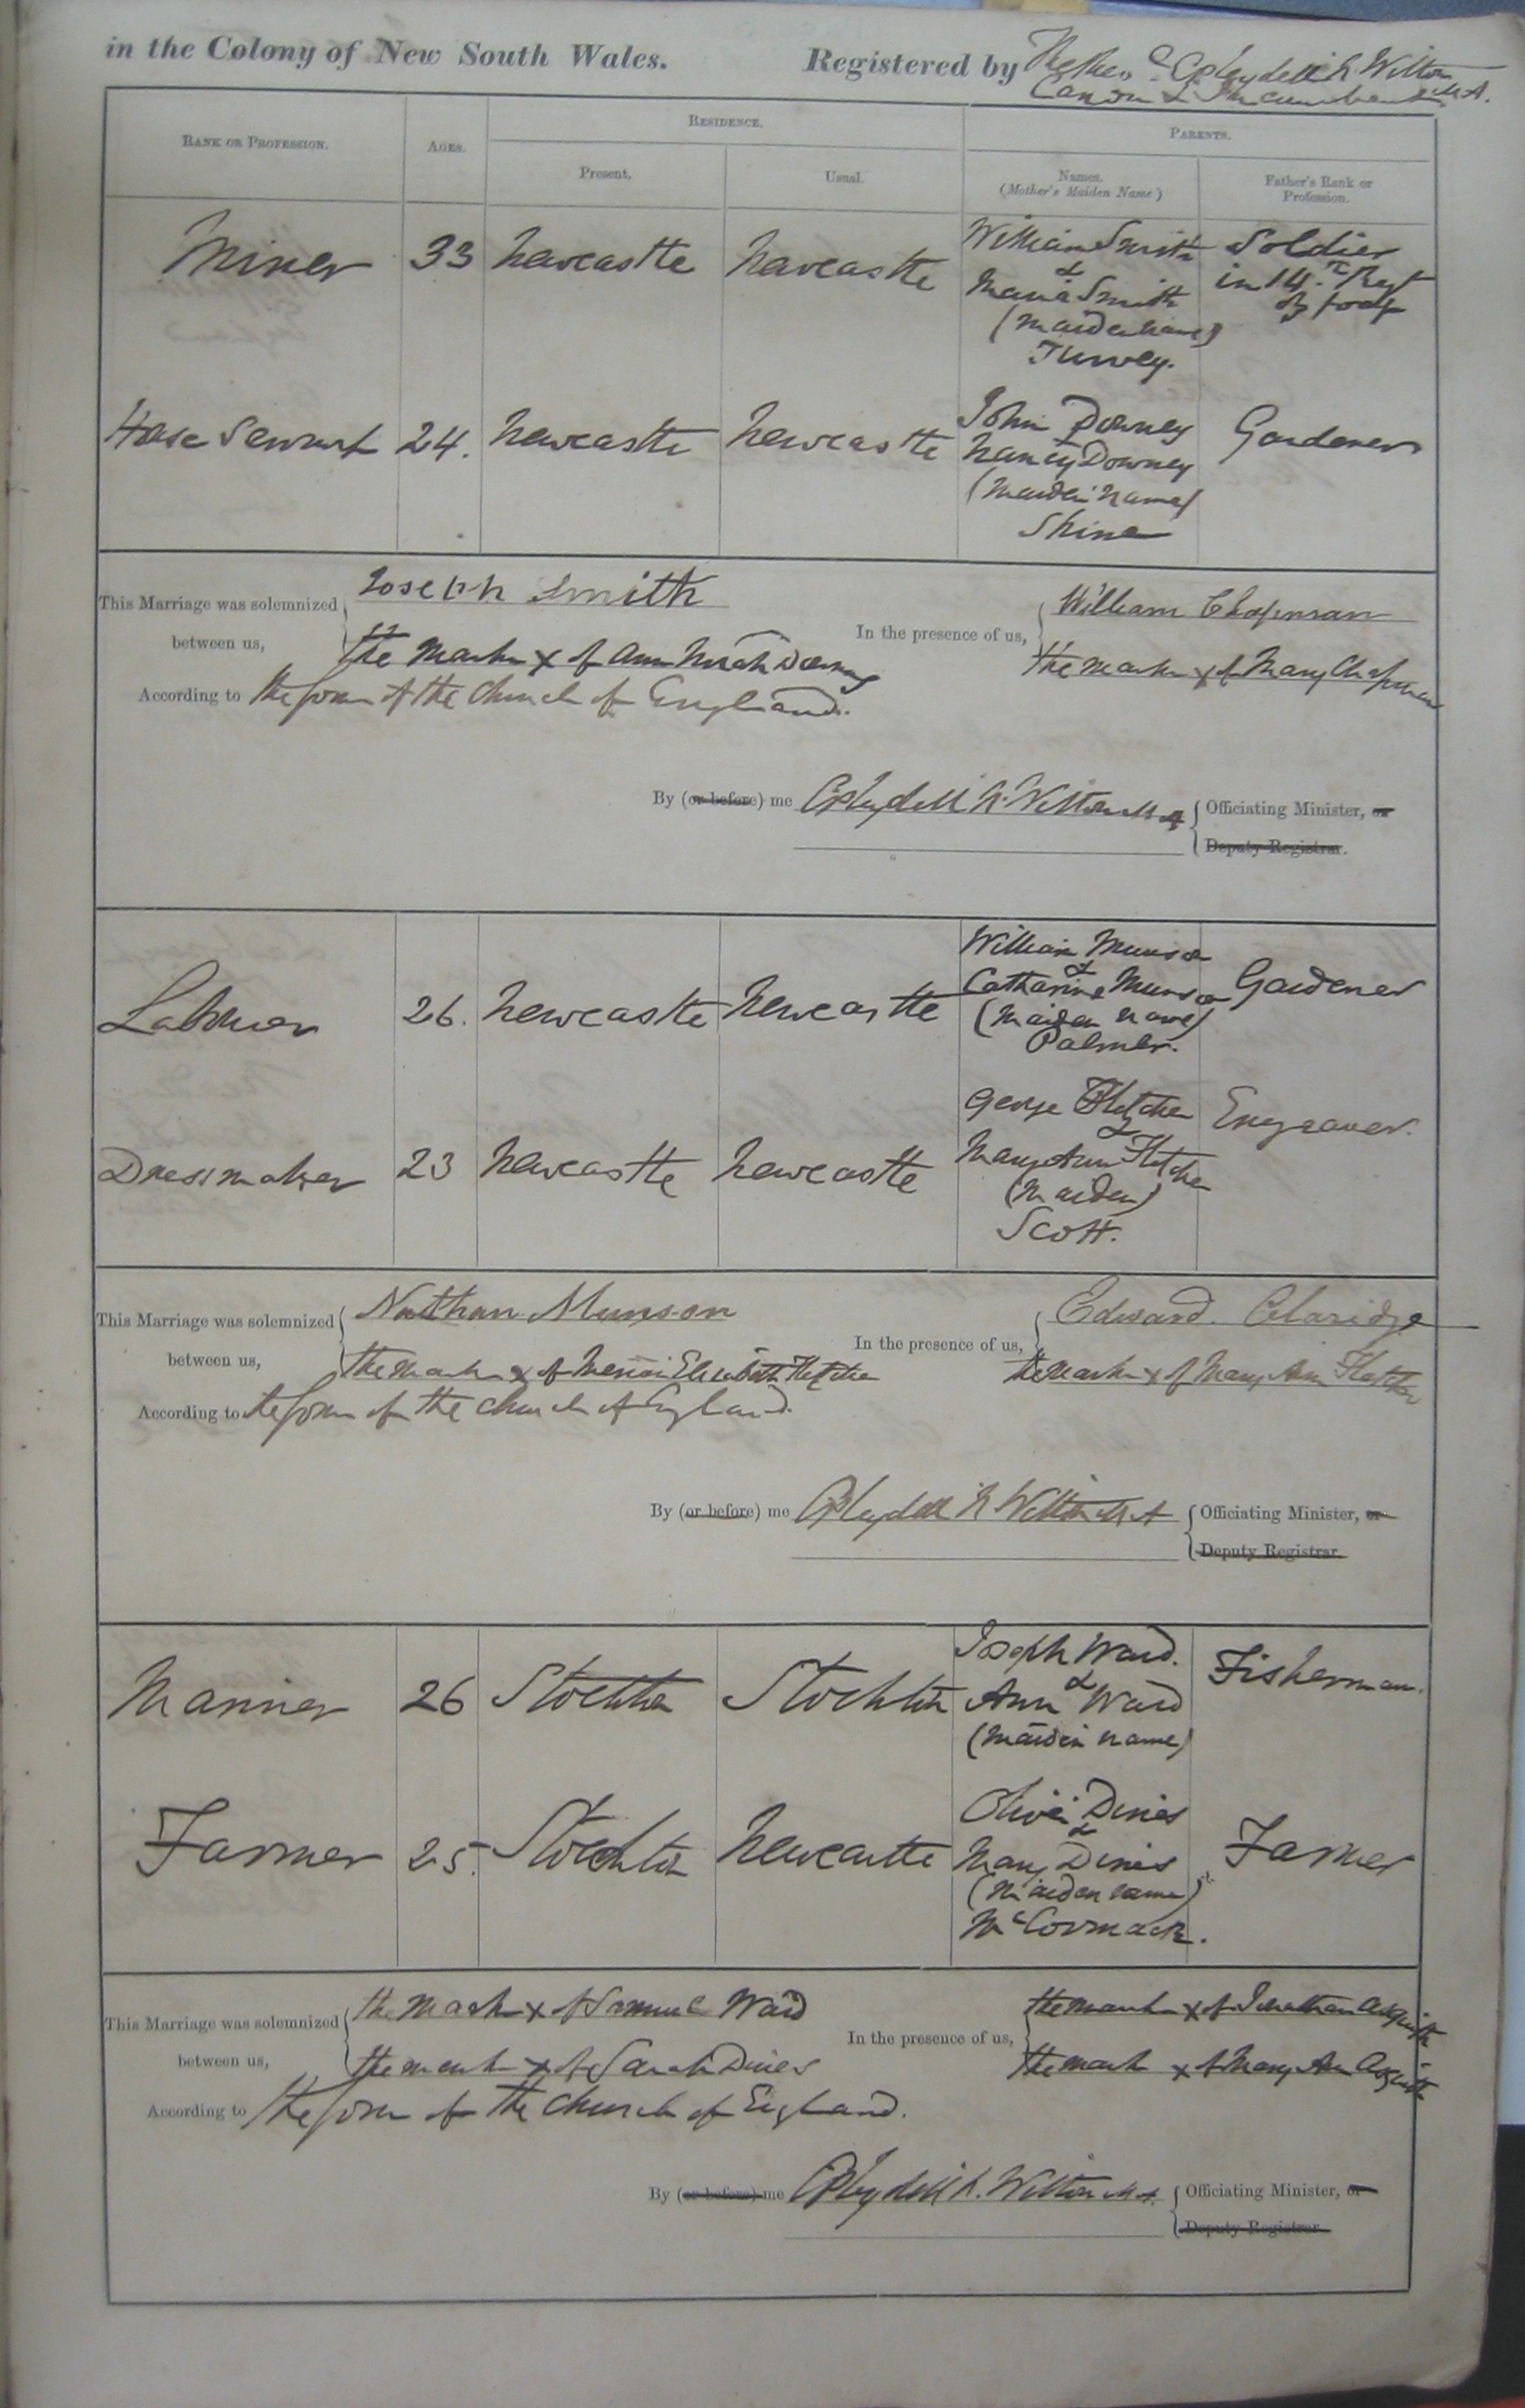 in the Colony of New South Wales. Registered by C Pleydell N Wilton
Canon & Incumbent M.A.
RANK OR PROFESSION. AGES. RESIDENCE. PARENTS.
Present. Usual. Names. (Mother's Maiden Name) Father's Rank or Profession.
Miner 33 Newcastle Newcastle William Smith Soldier
& in 14th Regt
Maria Smith of foot
(Maiden Name)
Turvey.
House Servant 24. Newcastle Newcastle John Downey Gardener
Nancy Downey
(Maiden Name)
Shine
This Marriage was solemnized between us, Joseph Smith In the presence of us, William Chapman
the Mark x of Ann Downey the mark x of Mary Chapman
According to the form of the Church of England.
By (or before) me C Pleydell N. Wilton M A Officiating Minister, or
Deputy Registrar.
Labourer 26. Newcastle Newcastle William Munson Gardener
&
Catharine Munson
(Maiden Name)
Palmer.
George Fletcher Engraver.
&
Dressmaker 23 Newcastle Newcastle Mary Ann Fletcher
(Maiden)
Scott.
This Marriage was solemnized between us, Nathan Munson In the presence of us, Edward Claridge
the Mark x of Elizabeth Fletcher the Mark x of Mary Ann Fletcher
According to the form of the Church of England.
By (or before) me C Pleydell N Wilton M A Officiating Minister, or
Deputy Registrar.
Mariner 26 Stockton Stockton Joseph Ward. Fisherman.
&
Ann Ward
(Maiden Name)
Farmer 25. Stockton Newcastle Oliver Dines Farmer
&
Mary Dines
(Maiden name)
McCormack.
This Marriage was solemnized between us, the Mark x of Samuel Ward In the presence of us, the mark x of Jonathan Asquith
the mark x of Sarah Dines the mark x of Mary Ann Asquith
According to the form of the Church of England.
By (or before) me C Pleydell N. Wilton M A. Officiating Minister, or
Deputy Registrar.